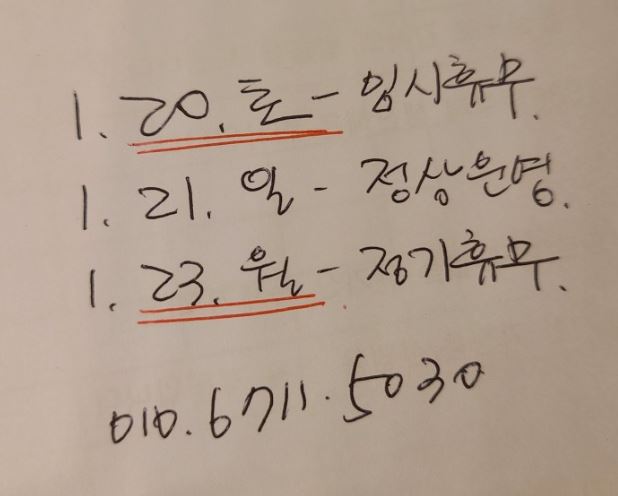 1. 20. 토 - 임시휴무.
1. 21. 일 - 정상운영.
1. 23. 월 - 정기휴무.
010.6711.5030